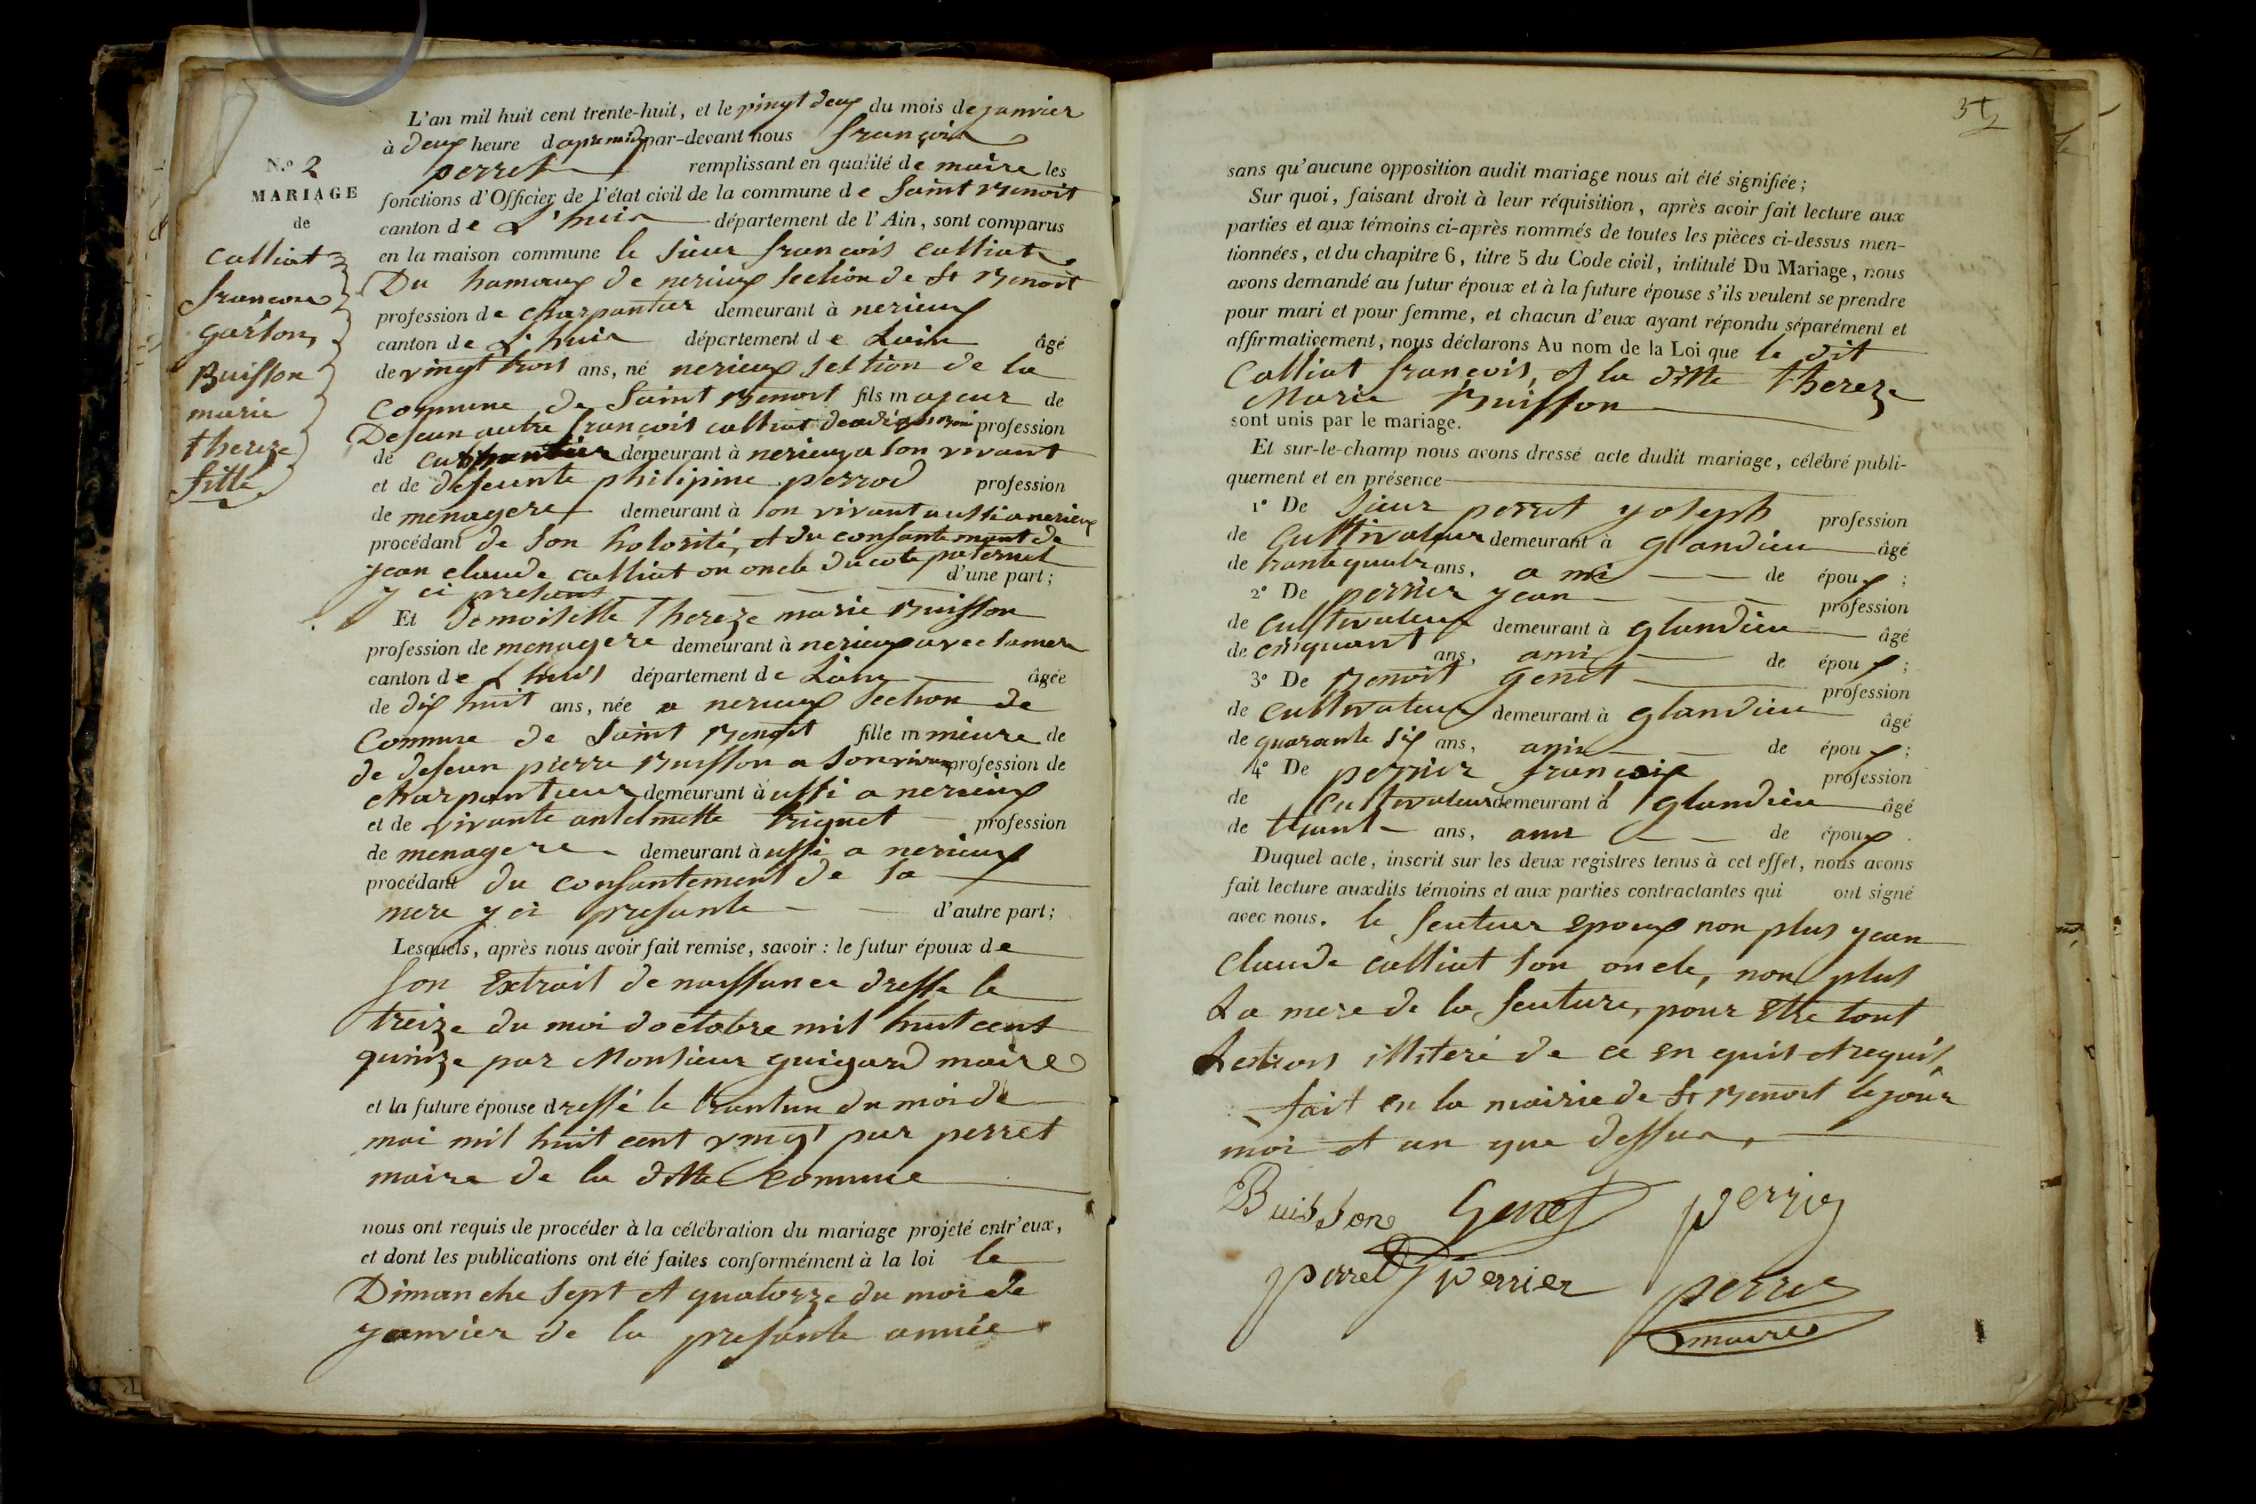 L'an mil huit cent trente-huit, et le vingt deux du mois de janvier
à deux heure d par-devant nous françois
perret remplissant en qualité de maire les
N.o 2
MARIAGE
de
Calliat
françois
garson,
Buisson
marie
thereze
fille
fonctions d'Officier de l'état civil de la commune de Saint Benoit
canton de L'huis département de l'Ain, sont comparus
en la maison commune le sieur françois calliat
Du hamaux de nerieux section de St Benoit
profession de charpantier demeurant à nerieux
canton de L'huis département de Lain âgé
de vingt trois ans, né nerieux section de la
Commune de Saint Benoit fils majeur de
Defeun autre françois calliat profession
de demeurant à nerieux a son vivant
et de defeunte philipine perrod profession
de menagere demeurant à son vivant aussi a nerieux
procédant de son hotorité, et du consantemant de
jean claude calliat on oncle du coté paternel
y ci presant d'une part;
Et demoiselle thereze marie Buisson
profession de menagere demeurant à nerieux avec sa mere
canton de Lhuis département de Lain âgée
de dix huit ans, née a nerieux section de
Commune de Saint Benoit fille mmieure de
de defeun pierre Buisson a son vivan profession de
charpantieur demeurant à ussi a nerieux
et de vivante antelmette triquet profession
de menagere demeurant à ussi a nerieux
procédant du consantement de sa
mere y ci presante d'autre part;
Lesquels, après nous avoir fait remise, savoir : le futur époux de
son Extrait de naissance dresse le
treize du moi doctobre mil huit cent
quinze par Monsieur guigard maire
et la future épouse dressé le trantun du moi de
mai mil huit cent vingt par perret
maire de la ditte Commune
nous ont requis de procéder à la célébration du mariage projeté entr'eux,
et dont les publications ont été faites conformément à la loi le
Dimanche sept et quatorze du moi de
janvier de la presante année
sans qu'aucune opposition audit mariage nous ait été signifiée;
Sur quoi, faisant droit à leur réquisition, après avoir fait lecture aux
parties et aux témoins ci-après nommés de toutes les pièces ci-dessus men-
tionnées, et du chapitre 6, titre 5 du Code civil, intitulé Du Mariage, nous
avons demandé au futur époux et à la future épouse s'ils veulent se prendre
pour mari et pour femme, et chacun d'eux ayant répondu séparément et
affirmativement, nous déclarons Au nom de la Loi que le dit
Calliat françois, et la ditte thereze
Marie Buisson
sont unis par le mariage.
Et sur-le-champ nous avons dressé acte dudit mariage, célébré publi-
quement et en présence
1° De sieur perret joseph profession
de Cultivateur demeurant à glandieu âgé
de trante quatre ans, ami de époux;
2° De perrier jean profession
de Cultivateur demeurant à glandieu âgé
de cinquant ans, ami de époux;
3° De Benoit genet profession
de cultivateur demeurant à glandieu âgé
de quarante six ans, ami de époux;
4° De perrier françois profession
de Cultivateur demeurant à glandieu âgé
de trant ans, ami de époux.
Duquel acte, inscrit sur les deux registres tenus à cet effet, nous avons
fait lecture auxdits témoins et aux parties contractantes qui ont signé
avec nous. le feuteur Epoux non plus jean
Claude calliat son oncle, non plus
La mere de la feuture, pour Etre tout
illiteré de ce en quis et requis,
fait en la mairie de St Benoit le jour
moi et an que dessus,
Buisson Genet perrier
perret perrier perret
maire